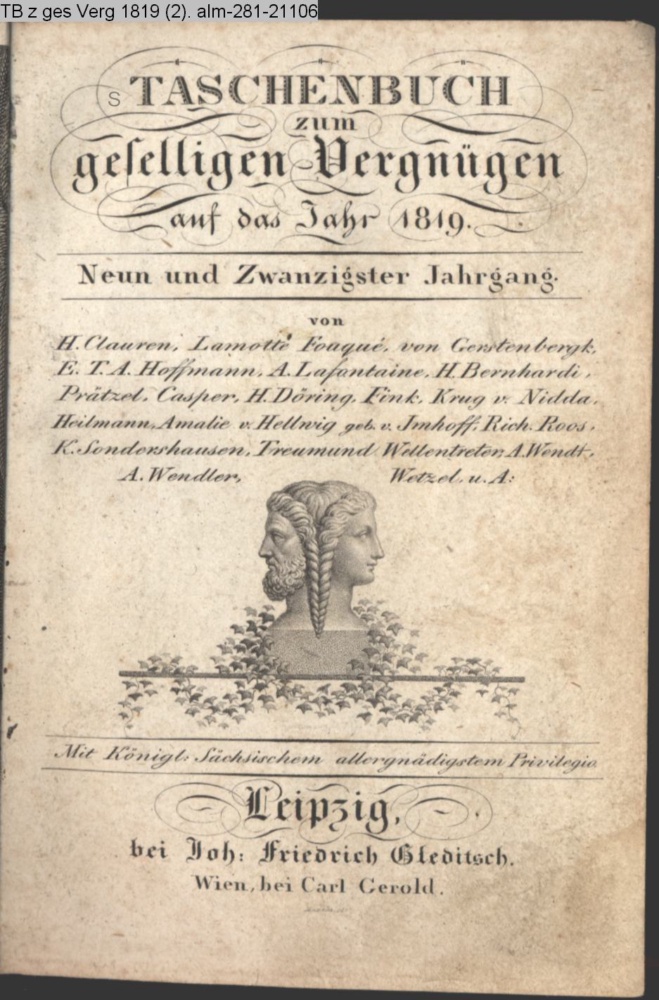 TB z ges Verg 1819 (2). alm-281-21106
S TASCHENBUCH
zum
geſelligen Vergnügen
auf das Jahr 1819.
Neun und Zwanzigster Jahrgang.
von
H. Clauren, Lamotte Fouqué, von Gerstenbergk,
E. T. A. Hoffmann, A. Lafontaine, H. Bernhardi,
Prätzel, Casper, H. Döring, Fink, Krug v. Nidda,
Heilmann, Amalie v. Hellwig geb. v. Jmhoff, Rich. Roos,
K. Sondershausen, Treumund Wellentreter, A. Wendt,
A. Wendler, Wetzel, u. A:
Mit Königl: Sächsischem allergnädigstem Privilegio
Leipzig,
bei Joh: Friedrich Gleditsch.
Wien, bei Carl Gerold.